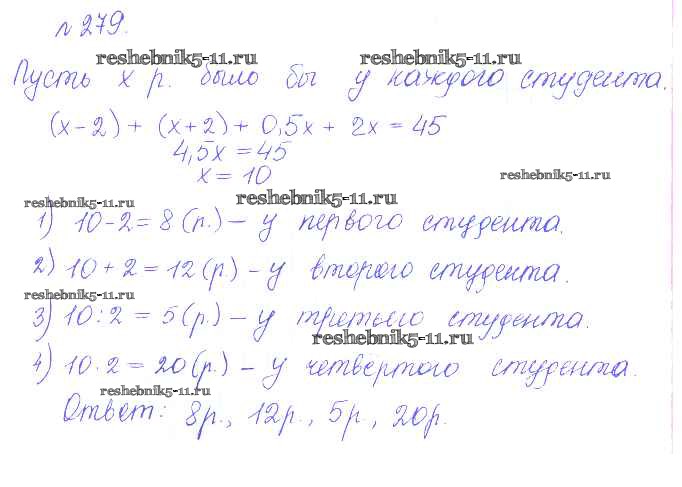 № 279.
reshebnik5-11.ru reshebnik5-11.ru
Пусть x р. было бы у каждого студента.
(x-2) + (x+2) + 0,5x + 2x = 45
4,5x = 45
x = 10
reshebnik5-11.ru
reshebnik5-11.ru reshebnik5-11.ru
1) 10-2 = 8 (р.) - у первого студента.
2) 10 + 2 = 12 (р.) - у второго студента.
reshebnik5-11.ru
3) 10 : 2 = 5 (р.) - у третьего студента.
reshebnik5-11.ru
4) 10 · 2 = 20 (р.) - у четвертого студента.
reshebnik5-11.ru
Ответ: 8р., 12р., 5р., 20р.